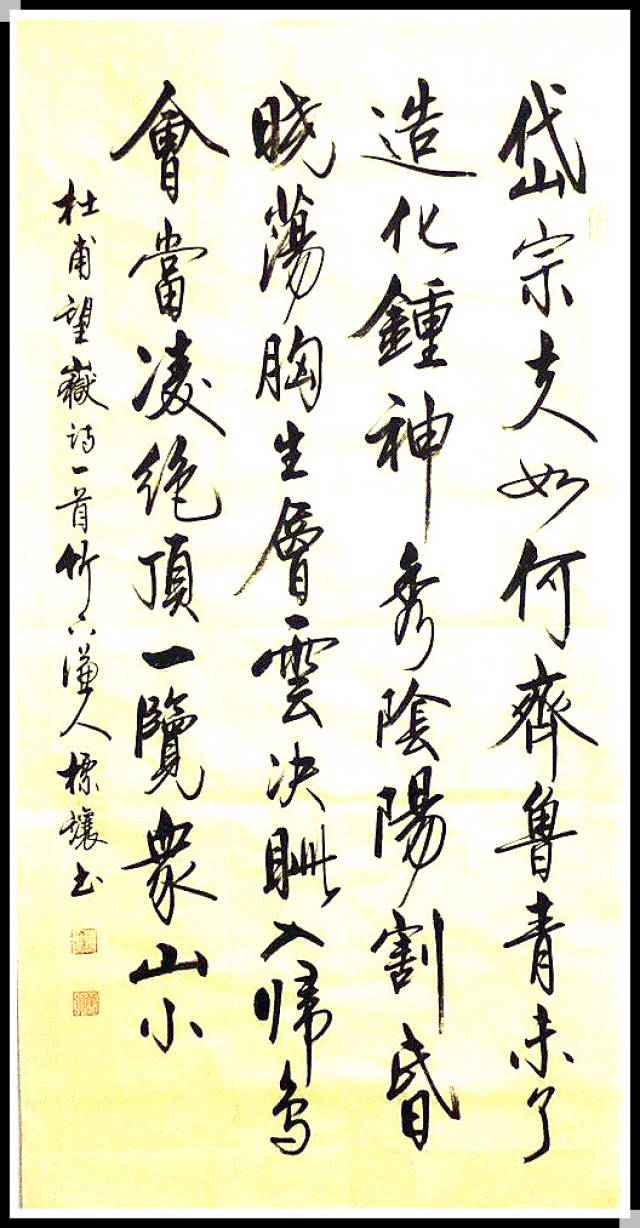 岱宗夫如何齊魯青未了
造化鍾神秀陰陽割昏
晓蕩胸生層雲决眦入帰鳥
會當凌絶頂一覽衆山小
杜甫望嶽詩一首竹謙人讓书